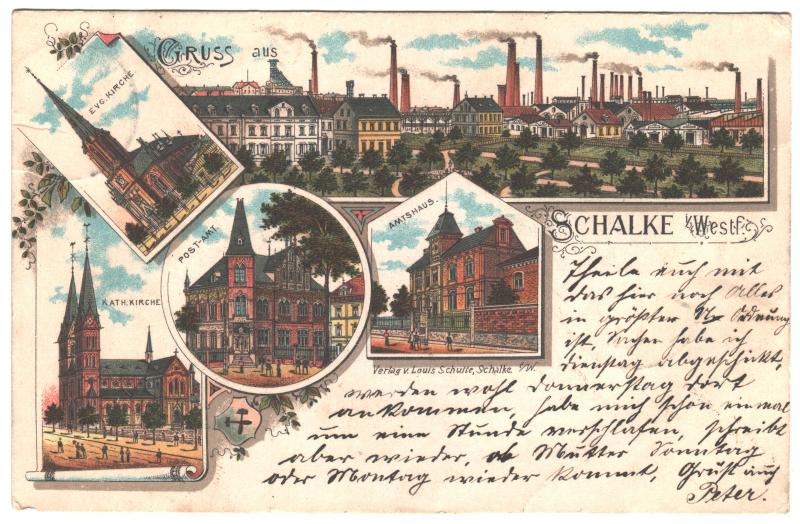 GRUSS aus
EVG. KIRCHE
SCHALKE i/Westf.
POST-AMT.
AMTSHAUS.
KATH. KIRCHE
Verlag v. Louis Schulte, Schalke. i/W.
Theile euch mit
das hier noch Alles
in größter Ordnung
ist, Sachen habe ich
Dienstag abgeschickt,
werden wohl Donnerstag dort
ankommen, habe mich schon einmal
um eine Stunde verschlafen, schreibt
aber wieder, ob Mutter Sonntag
oder Montag wieder kommt, Grüßt euch
Peter.